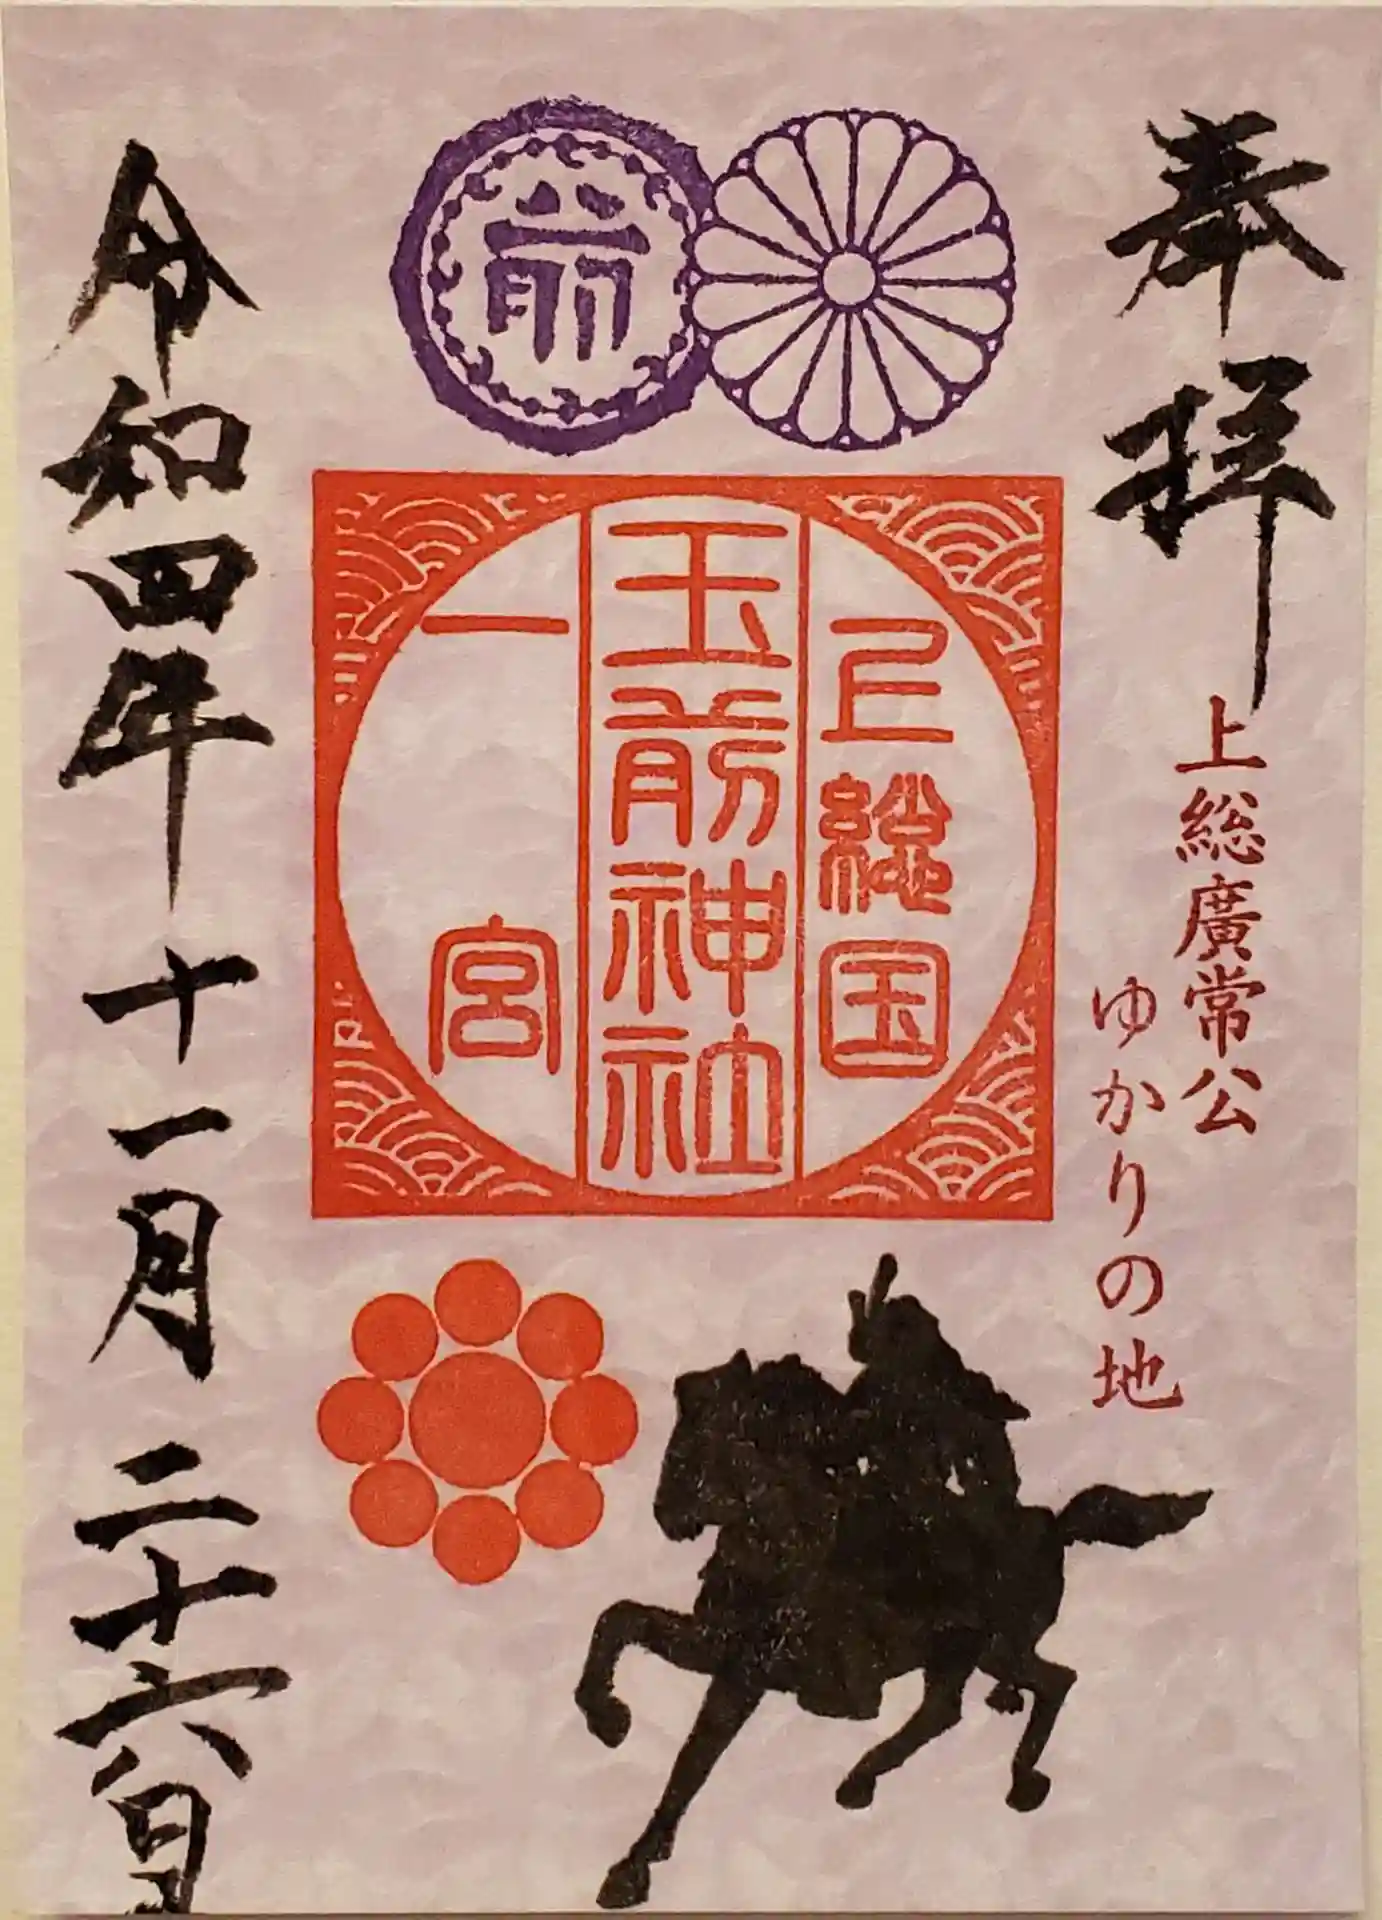 奉拝
上総廣常公
ゆかりの地
前
上総国
玉前神社
一宮
令和四年十一月二十六日